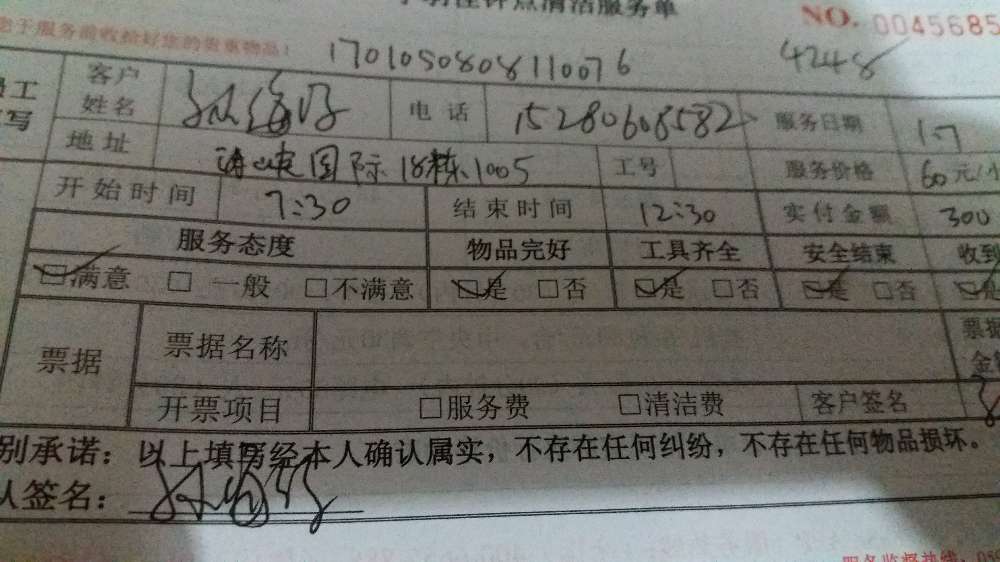 点清洁服务单
NO. 0045685
于服务前收拾好您的贵重物品！
1701050808110076 4248
员工
写
客户姓名 电话 15280608582 服务日期 1.7
地址 海峡国际18栋1005 工号 服务价格 60元/小
开始时间 7:30 结束时间 12:30 实付金额 300
服务态度 物品完好 工具齐全 安全结束 收到
☑满意 □一般 □不满意 ☑是 □否 ☑是 □否 ☑是 □否 ☑是
票据 票据名称 票据金
开票项目 □服务费 □清洁费 客户签名
别承诺：以上填写经本人确认属实，不存在任何纠纷，不存在任何物品损坏。
人签名：
服务监督热线：059